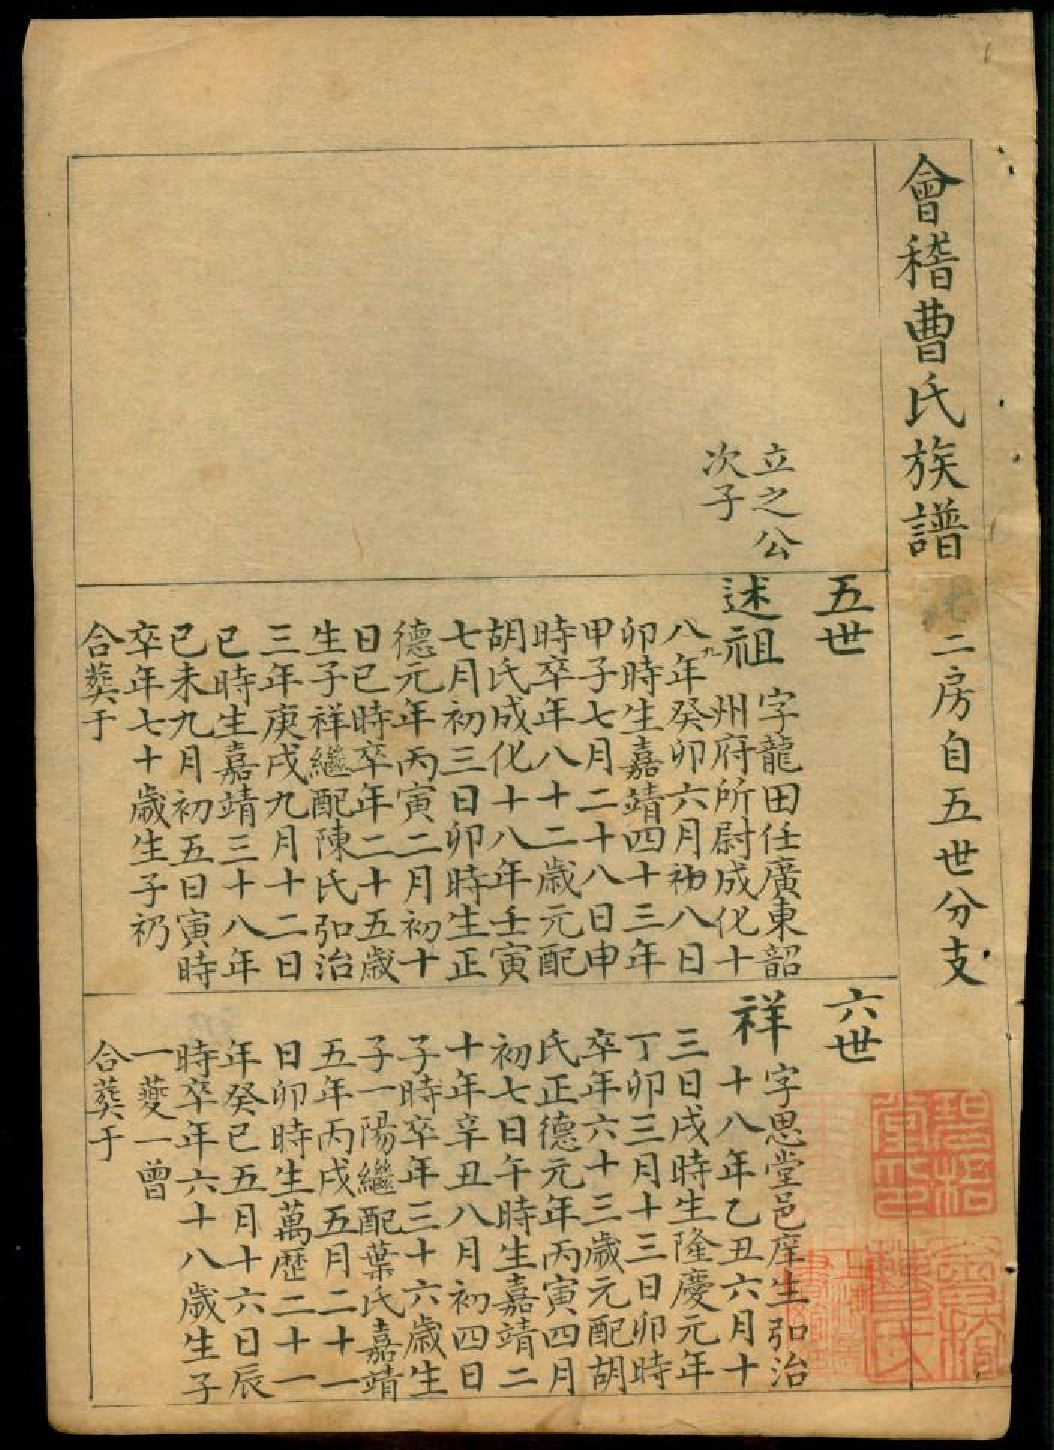 會稽曹氏族譜
二房自五世分支
立之公
次子
五世
述祖
字龍田任廣東韶
州府所尉成化十
九
八年癸卯六月初八日
卯時生嘉靖四十三年
甲子七月二十八日申
時卒年八十二歲元配
胡氏成化十八年壬寅
七月初三日卯時生正
德元年丙寅二月初十
日巳時卒年二十五歲
生子祥繼配陳氏弘治
三年庚戌九月十二日
巳時生嘉靖三十八年
己未九月初五日寅時
卒年七十歲生子礽
合葬于
六世
祥
字思堂邑庠生弘治
十八年乙丑六月十
三日戌時生隆慶元年
丁卯三月十三日卯時
卒年六十三歲元配胡
氏正德元年丙寅四月
初七日午時生嘉靖二
十年辛丑八月初四日
子時卒年三十六歲生
子一陽繼配葉氏嘉靖
五年丙戌五月二十一
日卯時生萬歷二十一
年癸巳五月十六日辰
時卒年六十八歲生子
一夔一曾
合葬于